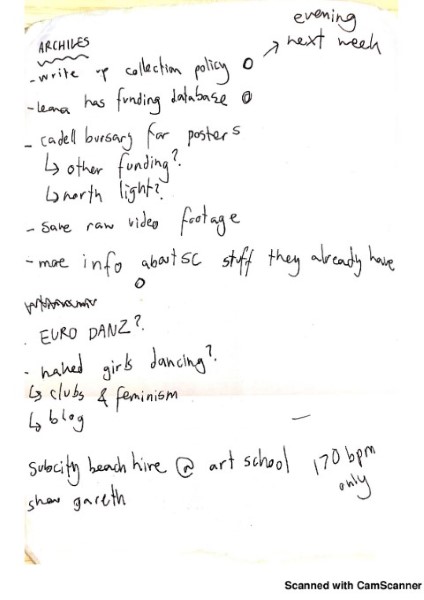 evening
→ next week
ARCHIVES
- write up collection policy o
- leana has funding database o
- cadell bursary for posters
↳ other funding?
↳ north light?
- save raw video footage
- more info about SC stuff they already have
o
. EURO DANZ?
- naked girls dancing?
↳ clubs & feminism
↳ blog
subcity beach hire @ art school 170 bpm
only
show gareth
Scanned with CamScanner